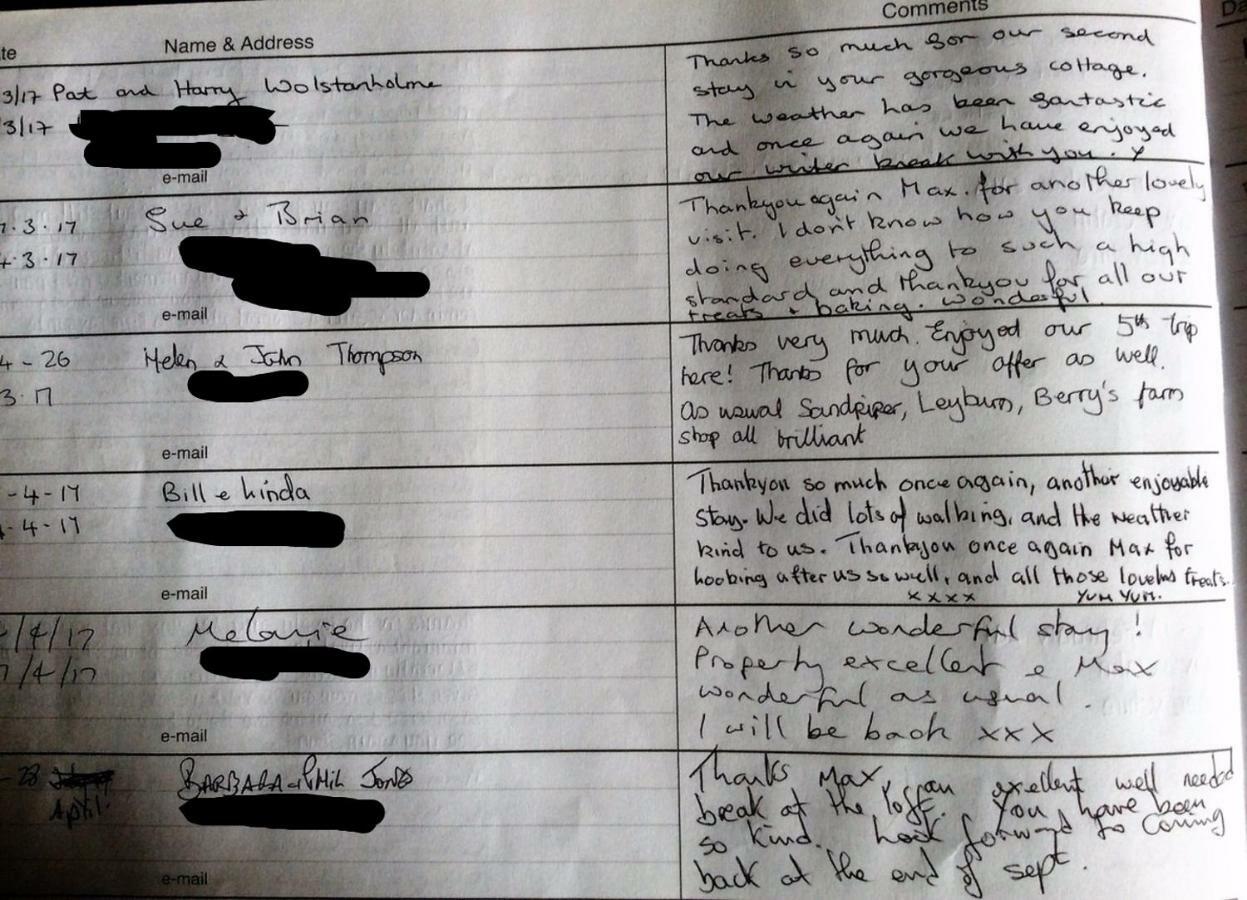 te Name & Address Comments Da
3/17 Pat and Harry Wolstanholme
3/17
e-mail
Thanks so much for our second
stay in your gorgeous cottage.
The weather has been fantastic
and once again we have enjoyed
our winter break with you. X
7.3.17 Sue & Brian
4.3.17
e-mail
Thankyou again Max. for another lovely
visit. I don't know how you keep
doing everything to such a high
standard and thankyou for all our
treats & baking. Wonderful.
4 - 26 Helen & John Thompson
3.17
e-mail
Thanks very much. Enjoyed our 5th trip
here! Thanks for your offer as well.
As usual Sandpiper, Leyburn, Berry's farm
shop all brilliant
-4-17 Bill e Linda
-4-17
e-mail
Thankyou so much once again, another enjoyable
stay. We did lots of walking, and the weather
kind to us. Thankyou once again Max for
looking after us so well, and all those treats.
xxxx YUM YUM.
/4/17 Melanie
7/4/17
e-mail
Another wonderful stay!
Property excellent e Max
wonderful as usual.
I will be back xxx
-28 BARBARA Jones
April
e-mail
Thanks Max, for an exellent well needed
break at the loft. You have been
so kind. Look forward to coming
back at the end of sept.